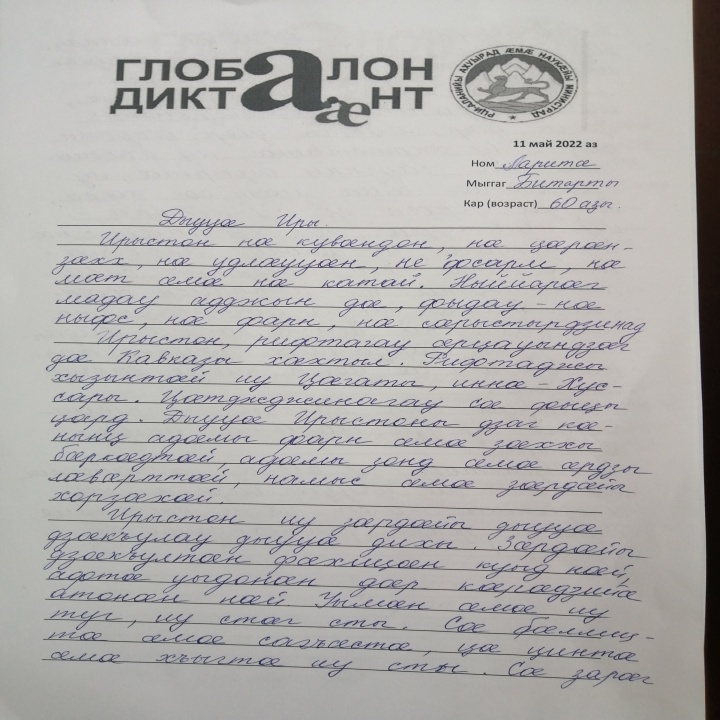 ГЛОБАЛОН
ДИКТАÆНТ
РЦИ-АЛАНИЙЫ АХУЫРАД ÆМÆ НАУКÆЙЫ МИНИСТРАД
11 май 2022 аз
Ном Ларитæ
Мыггаг Битарты
Кар (возраст) 60 азы.
Дыууæ Иры.
Ирыстон нæ кувæндон, нæ цæрæн-
зæхх, нæ удлæууæн, не 'фсарм, нæ
мæт æмæ нæ катай. Ныййарæг
мадау адджын дæ, фыдау - нæ
ныфс, нæ фарн, нæ сæрыстырдзинад
Ирыстон, рифтагау æрцауындзæг
дæ Кавказы хæхтыл. Рифтаджы
хызынтæй иу Цæгаты, иннæ - Хус-
сары. Цæтджджинагау сæ фынцы
цард. Дыууæ Ирыстоны дзаг кæ-
нынц адæмы фарн æмæ зæххы
бæркæдтæй, адæмы зонд æмæ æрдзы
лæвæрттæй, намыс æмæ зæрдæйы
хорзæхæй.
Ирыстон иу зæрдæйы дыууæ
дзæкъулау дыууæ дихы. Зæрдæйы
дзæкъултæн фæхицæн куыд нæй,
афтæ уыдонæн дæр кæрæдзийæ
атонæн нæй. Уымæн æмæ иу
туг, иу стæг сты. Сæ бæллиц-
тæ æмæ сагъæстæ, цæ цинтæ
æмæ хъыгтæ иу сты. Сæ зарæг